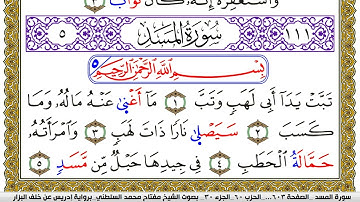 وَاسْتَغْفِرْهُ إِنَّهُ كَانَ تَوَّابًا ٣
١١١ سُورَةُ المَسَدِ ٥
بِسْمِ اللَّهِ الرَّحْمَٰنِ الرَّحِيمِ
تَبَّتْ يَدَا أَبِي لَهَبٍ وَتَبَّ ١ مَا أَغْنَىٰ عَنْهُ مَالُهُ وَمَا
كَسَبَ ٢ سَيَصْلَىٰ نَارًا ذَاتَ لَهَبٍ ٣ وَامْرَأَتُهُ
حَمَّالَةُ الْحَطَبِ ٤ فِي جِيدِهَا حَبْلٌ مِّن مَّسَدٍ ٥
سورة المسد _الصفحة ٦٠٣_ الحزب ٦٠_الجزء ٣٠_ بصوت الشيخ مفتاح محمد السلطني_برواية إدريس عن خلف البزار